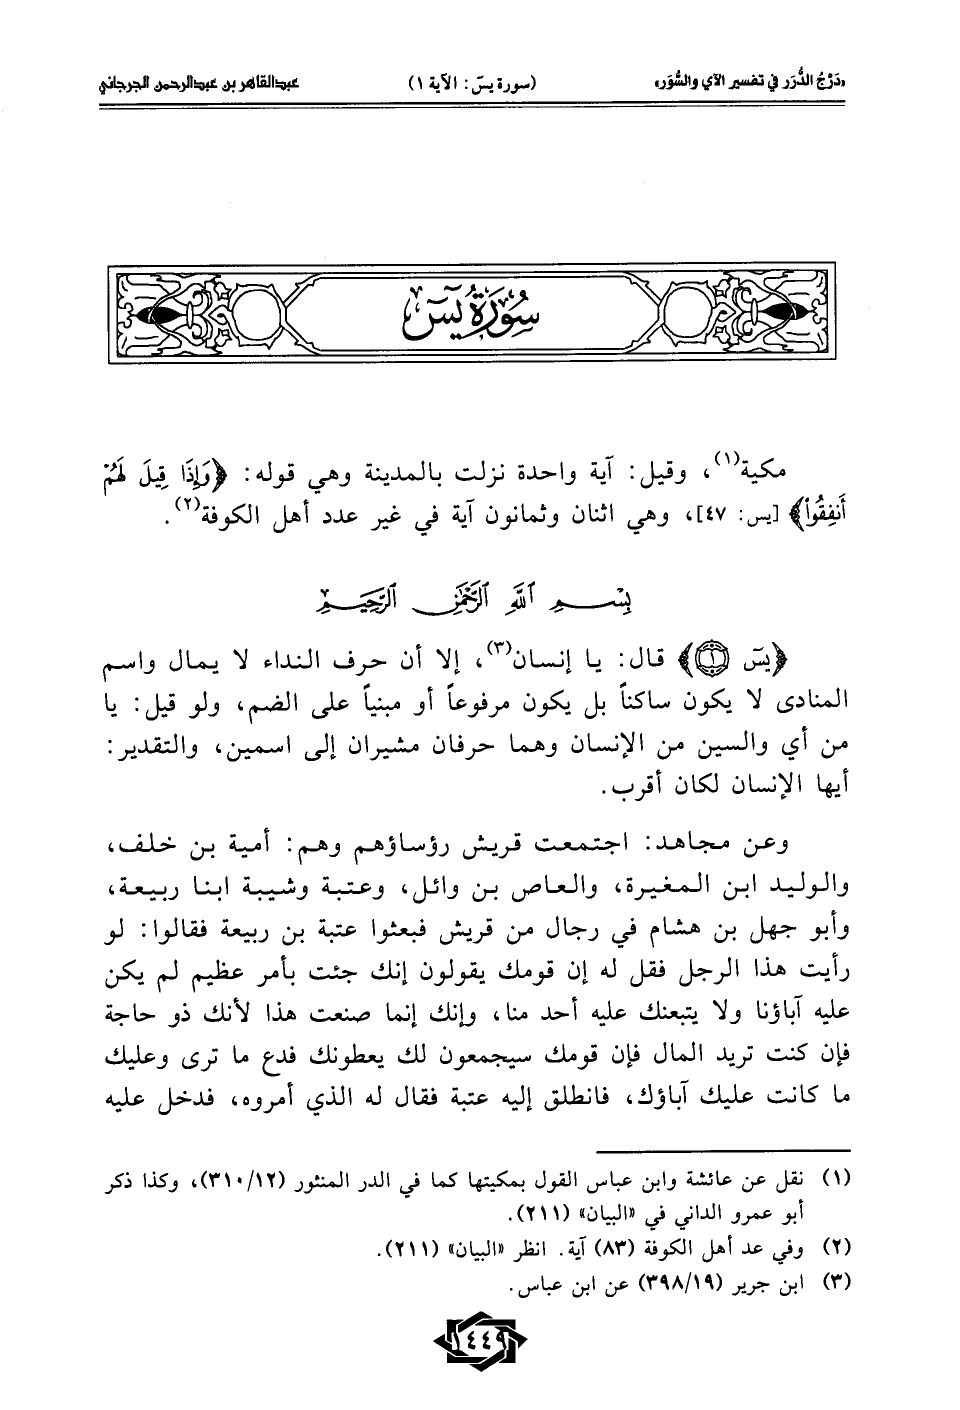 «دَرْجُ الدُّرَر في تفسير الآي والسُّوَر» (سورة يسَ: الآية ١) عبدالقاهر بن عبدالرحمن الجرجاني
سُورَةُ يسَ
مكية(١)، وقيل: آية واحدة نزلت بالمدينة وهي قوله: ﴿وَإِذَا قِيلَ لَهُمْ
أَنفِقُوا۟﴾ [يس: ٤٧]، وهي اثنان وثمانون آية في غير عدد أهل الكوفة(٢).
بِسْمِ ٱللَّهِ ٱلرَّحْمَٰنِ ٱلرَّحِيمِ
﴿يسٓ ۝١﴾ قال: يا إنسان(٣)، إلا أن حرف النداء لا يمال واسم
المنادى لا يكون ساكناً بل يكون مرفوعاً أو مبنياً على الضم، ولو قيل: يا
من أي والسين من الإنسان وهما حرفان مشيران إلى اسمين، والتقدير:
أيها الإنسان لكان أقرب.
وعن مجاهد: اجتمعت قريش رؤساؤهم وهم: أمية بن خلف،
والوليد ابن المغيرة، والعاص بن وائل، وعتبة وشيبة ابنا ربيعة،
وأبو جهل بن هشام في رجال من قريش فبعثوا عتبة بن ربيعة فقالوا: لو
رأيت هذا الرجل فقل له إن قومك يقولون إنك جئت بأمر عظيم لم يكن
عليه آباؤنا ولا يتبعنك عليه أحد منا، وإنك إنما صنعت هذا لأنك ذو حاجة
فإن كنت تريد المال فإن قومك سيجمعون لك يعطونك فدع ما ترى وعليك
ما كانت عليك آباؤك، فانطلق إليه عتبة فقال له الذي أمروه، فدخل عليه
(١) نقل عن عائشة وابن عباس القول بمكيتها كما في الدر المنثور (٣١٠/١٢)، وكذا ذكر
أبو عمرو الداني في «البيان» (٢١١).
(٢) وفي عد أهل الكوفة (٨٣) آية. انظر «البيان» (٢١١).
(٣) ابن جرير (٣٩٨/١٩) عن ابن عباس.
١٤٤٩